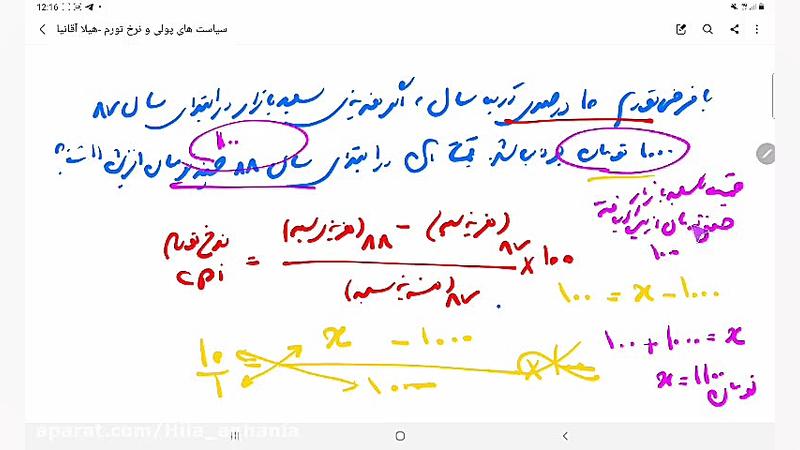 12:16
سیاست های پولی و نرخ تورم -هیلا آقانیا
با فرض تورم ۱۰ درصدی در یک سال ، اگر هزینه‌ی سبد بازار در ابتدای سال ۸۷
۱۰۰۰ تومان بوده باشد. قیمت آن در ابتدای سال ۸۸ چند تومان افزایش داشته؟
۱۰۰
قیمت سبد بازار
چند تومان افزایش یافته
۱۰۰
نرخ تورم CPI = (هزینه سبد)۸۸ − (هزینه سبد)۸۷ × ۱۰۰
(هزینه سبد)۸۷
۱۰۰ = x − ۱۰۰۰
۱۰ x − ۱۰۰۰
۱ ۱۰۰۰
۱۰۰ + ۱۰۰۰ = x
x = ۱۱۰۰ تومان
aparat.com/Hila_aghania